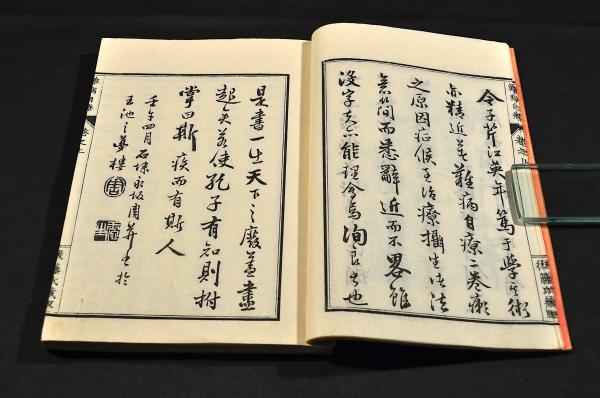 令子芹江英年篤于學術
亦精近著難病自療二卷癩
之原因症候至治療攝生法
意簡而悉辭近而不畧雖
沒字夫亦能理會焉洵良書也
是書一出天下之癈盖盡
起矣若使孔子有知則拊
掌曰斯疾而有斯人
壬午四月石埭永坂周書於
玉池之夢樓